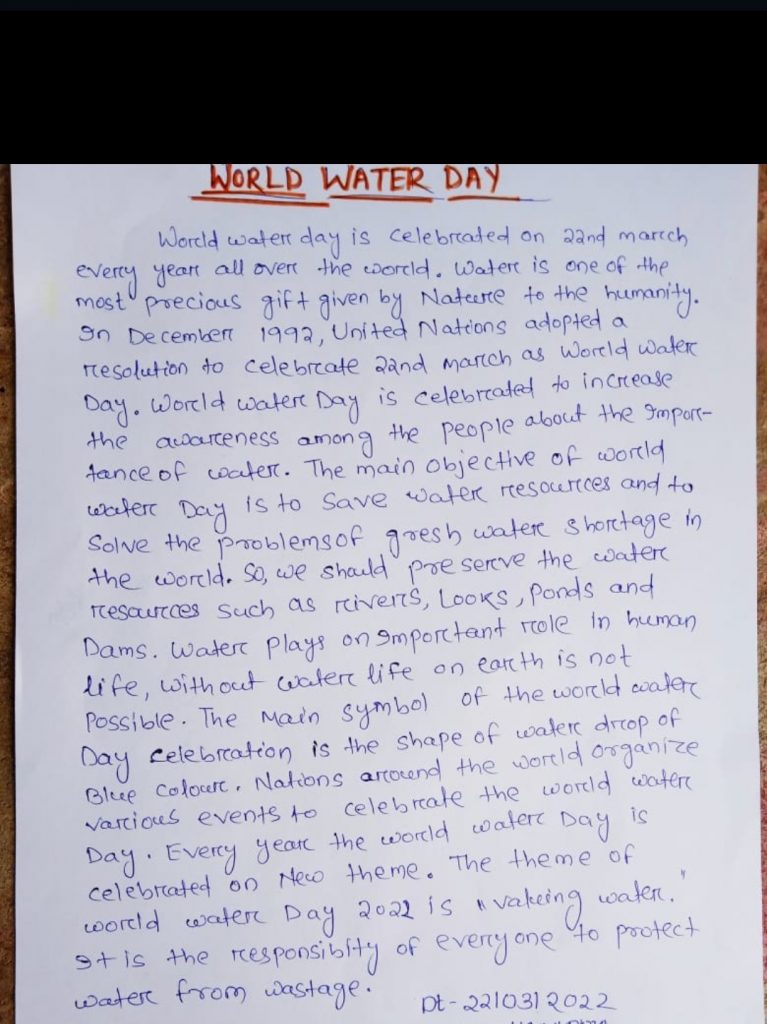 WORLD WATER DAY
World water day is celebrated on 22nd march
every year all over the world. Water is one of the
most precious gift given by Nature to the humanity.
In December 1992, United Nations adopted a
resolution to celebrate 22nd march as World Water
Day. World Water Day is celebrated to increase
the awareness among the people about the Impor-
tance of water. The main objective of world
water Day is to Save water resources and to
Solve the problems of gresh water shortage in
the world. So, we should preserve the water
resources such as rivers, Looks, Ponds and
Dams. Water plays an Important role in human
life, without water life on earth is not
Possible. The Main symbol of the world water
Day celebration is the shape of water drop of
Blue Colour. Nations around the world organize
various events to celebrate the world water
Day. Every year the world water Day is
celebrated on New theme. The theme of
world water Day 2022 is "valueing water."
It is the responsiblity of everyone to protect
water from wastage.
Dt-22/03/2022